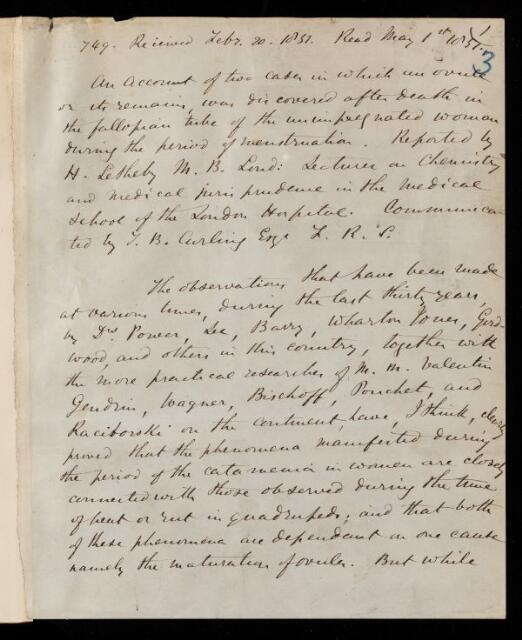 749. Received Feby. 20. 1851. Read May 1st 1851.
3
An account of two cases in which an ovule
or its remains, was discovered after death in
the fallopian tube of the unimpregnated woman
during the period of menstruation. Reported by
H. Letheby M. B. Lond: Lecturer on Chemistry
and medical jurisprudence in the medical
school of the London Hospital. Communica
ted by T. B. Curling Esqr F. R. S.
The observations that have been made
at various times, during the last thirty years,
by Drs Power, Lee, Barry, Wharton Jones, Gird-
wood, and others in this country, together with
the more practical researches of M. M. Valentin
Gendrin, Wagner, Bischoff, Pouchet, and
Raciborski on the continent, have, I think, clearly
proved that the phenomena manifested during
the period of the catamenia in women are closely
connected with those observed during the time
of heat or rut in quadrupeds; and that both
of these phenomena are dependant on one cause
namely the maturation of ovules. But while